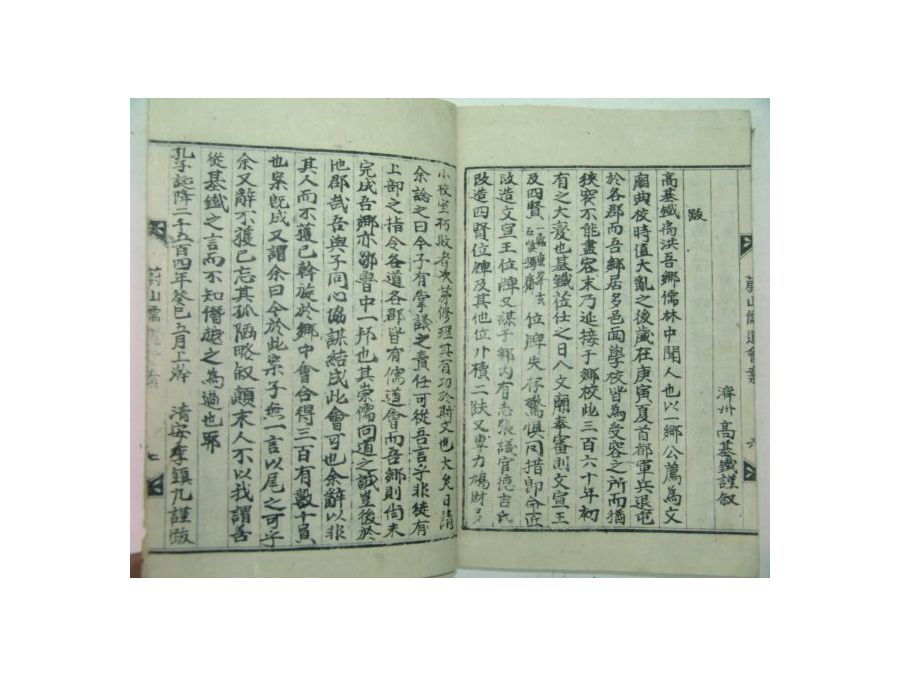 濟州高基鐵謹叙
跋
高基鐵喬洪吾鄉儒林中聞人也以一鄉公薦為文
廟典校時值大亂之後歲在庚寅夏首都軍兵退屯
於各郡而吾鄉居多邑面學校皆為受容之所而猶
狹窄不能盡容末乃延接于鄉校此三百六十年初
有之大變也基鐵莅任之日入文廟奉審則文宣王
及四賢位牌失存驚惧罔措即命匠
改造文宣王位牌又謀于鄉內有志張議官德吉氏
改造四賢位牌及其他位卄積二趺又專力鳩財
小校室朽敗者次第修理其有功於斯文也大矣日請
余諗之曰今子有掌議之責任可從吾言乎非徒有
上部之指令各道各郡皆有儒道會而吾鄉則尚未
完成吾鄉亦鄒魯中一邦也其崇儒向道之誠豈後於
他郡哉吾與子同心協謀結成此會可也余辭以非
其人而不獲已幹旋於鄉中會合得三百有數十員
也案既成又謂余曰今於此案子無一言以尾之可乎
余又辭不獲已忘其孤陋略叙顛末人不以我謂善
從基鐵之言而不知僭越之為過也耶
孔子誕降二千五百四年癸巳五月上澣 清安李鎮九謹跋
蔚山儒道會案
六
蔚山儒
七